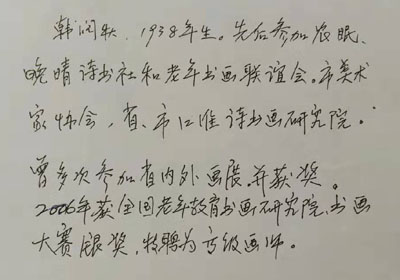 韩闰秋，1938年生。先后参加农眠、
晚晴诗书社和老年书画联谊会。市美术
家协会，省、市江淮诗书画研究院。
曾多次参加省内外画展，并获奖。
2006年获全国老年教育书画研究院，书画
大赛银奖，特聘为高级画师。